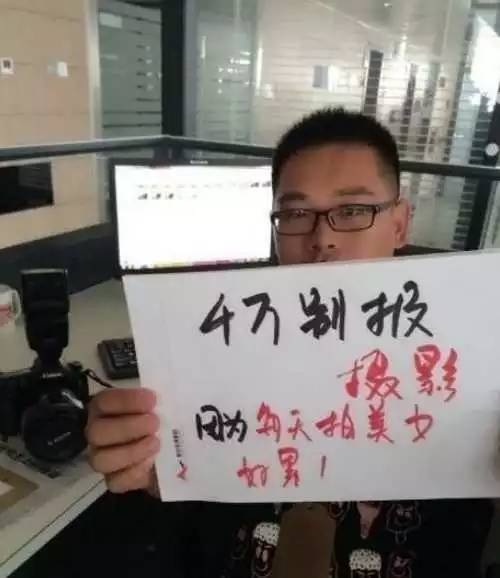 4万别报
摄影
因为每天拍美女
好累！
Canon